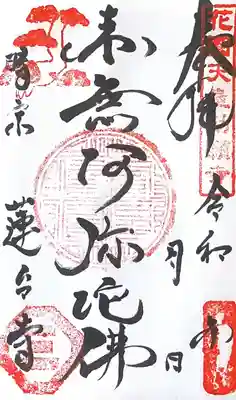 奉拝
令和 月 日
南無阿弥陀佛
時宗 蓮台寺